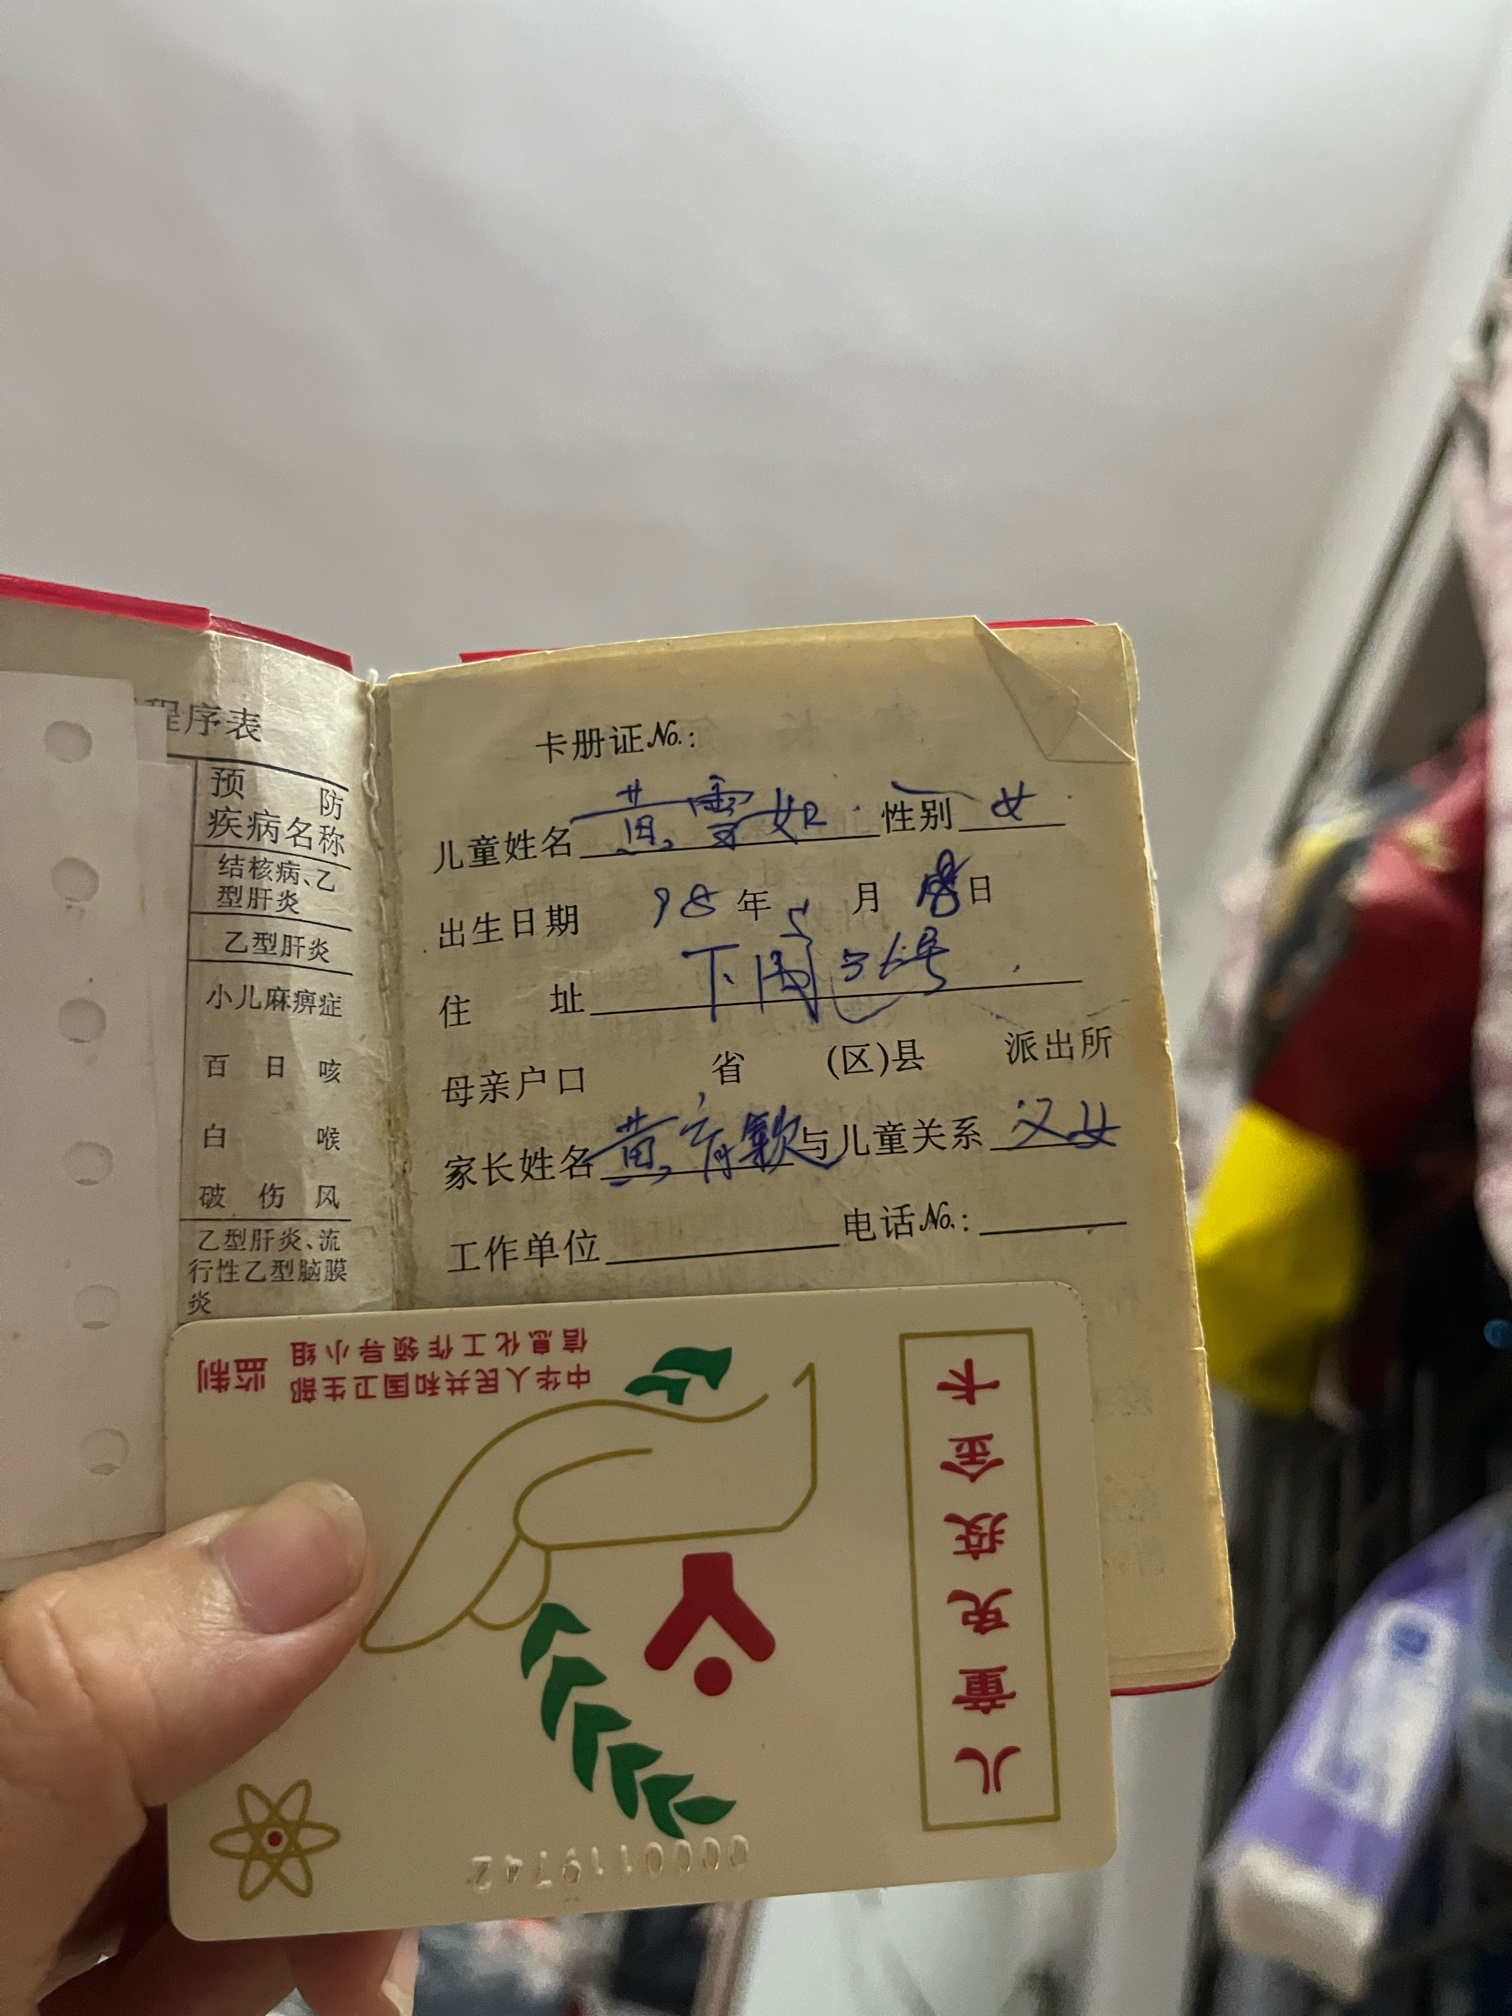 程序表
预防
疾病名称
结核病、乙
型肝炎
乙型肝炎
小儿麻痹症
百日咳
白喉
破伤风
乙型肝炎、流
行性乙型脑膜
炎
卡册证No.:
儿童姓名 黄雪如 性别 女
出生日期 98年5月 日
住址 下 36号
母亲户口 省 (区)县 派出所
家长姓名 黄育 与儿童关系 父女
工作单位 电话No.:
儿童免疫金卡
中华人民共和国卫生部
信息化工作领导小组
监制
0000119742